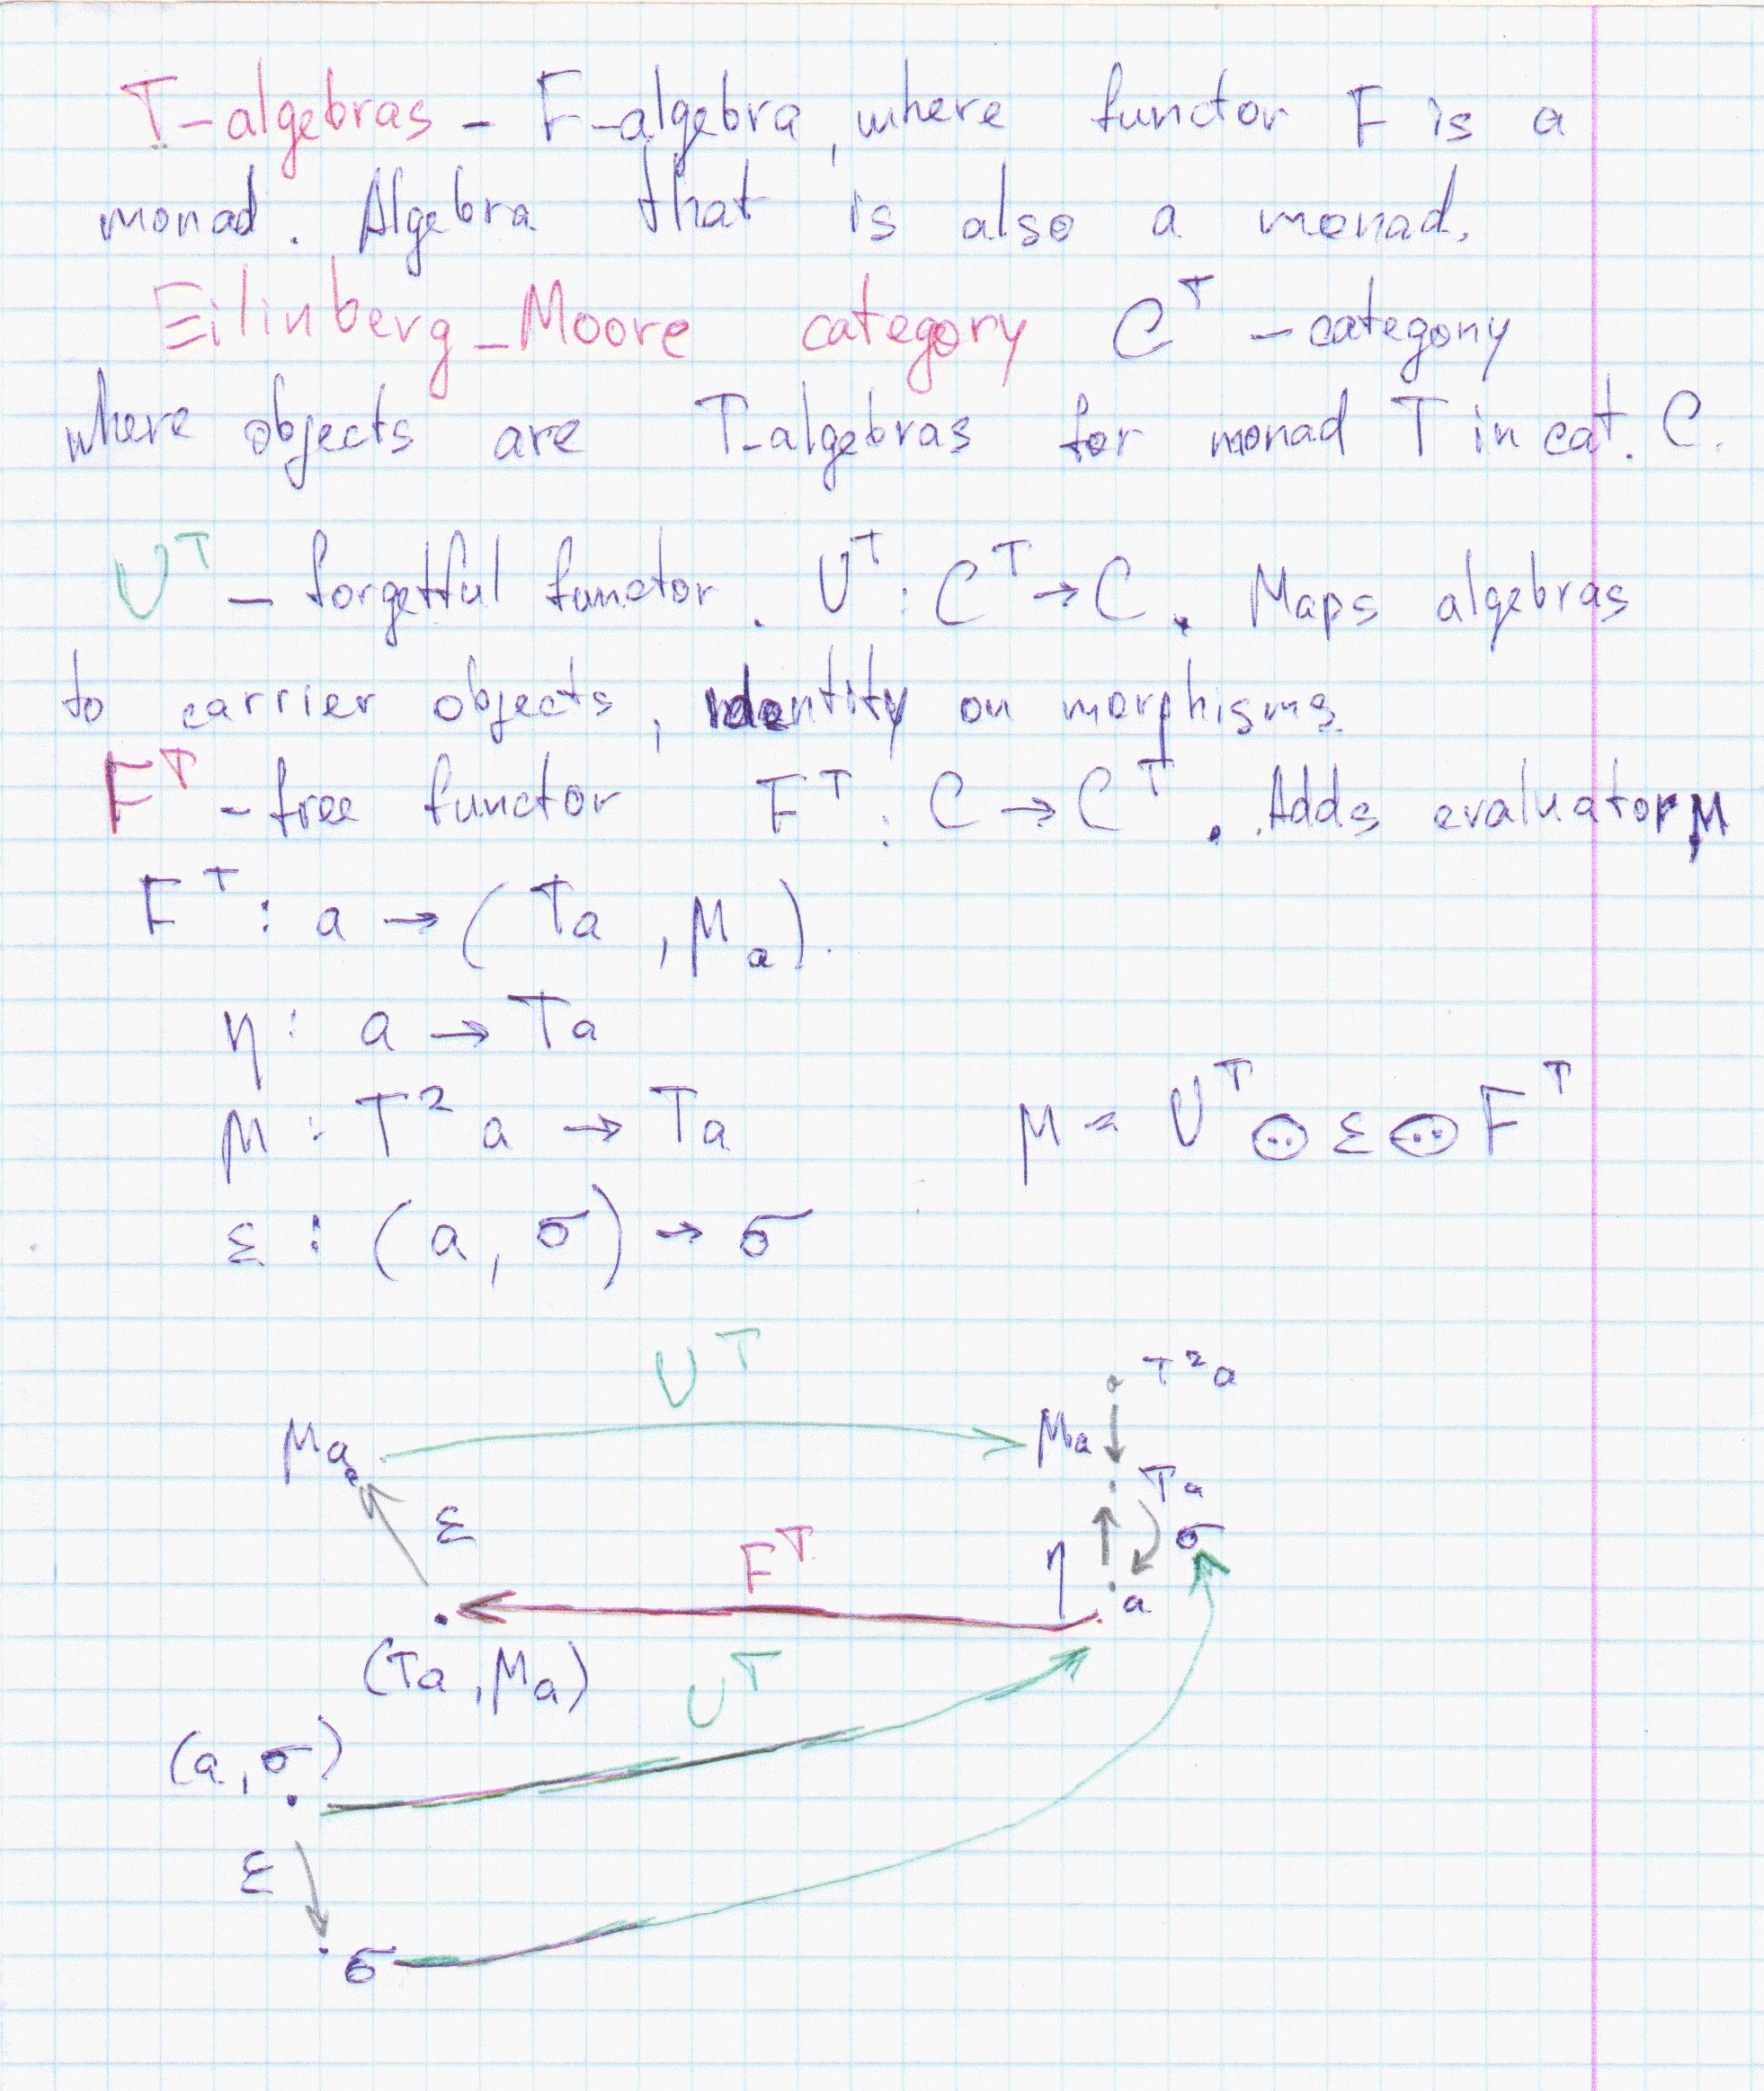 T-algebras - F-algebra, where functor F is a
monad. Algebra that is also a monad.
Eilinberg-Moore category Cᵀ - category
where objects are T-algebras for monad T in cat. C.
Uᵀ - forgetful functor. Uᵀ : Cᵀ → C. Maps algebras
to carrier objects, identity on morphisms.
Fᵀ - free functor Fᵀ : C → Cᵀ. Adds evaluator μ
Fᵀ : a → (Ta, μₐ).
η : a → Ta
μ : T² a → Ta μ = Uᵀ ⊙ ε ⊙ Fᵀ
ε : (a, σ) → σ
Uᵀ
T²a
μₐ μₐ
Ta
ε σ
Fᵀ η
a
(Ta, μₐ)
Uᵀ
(a, σ)
ε
σ